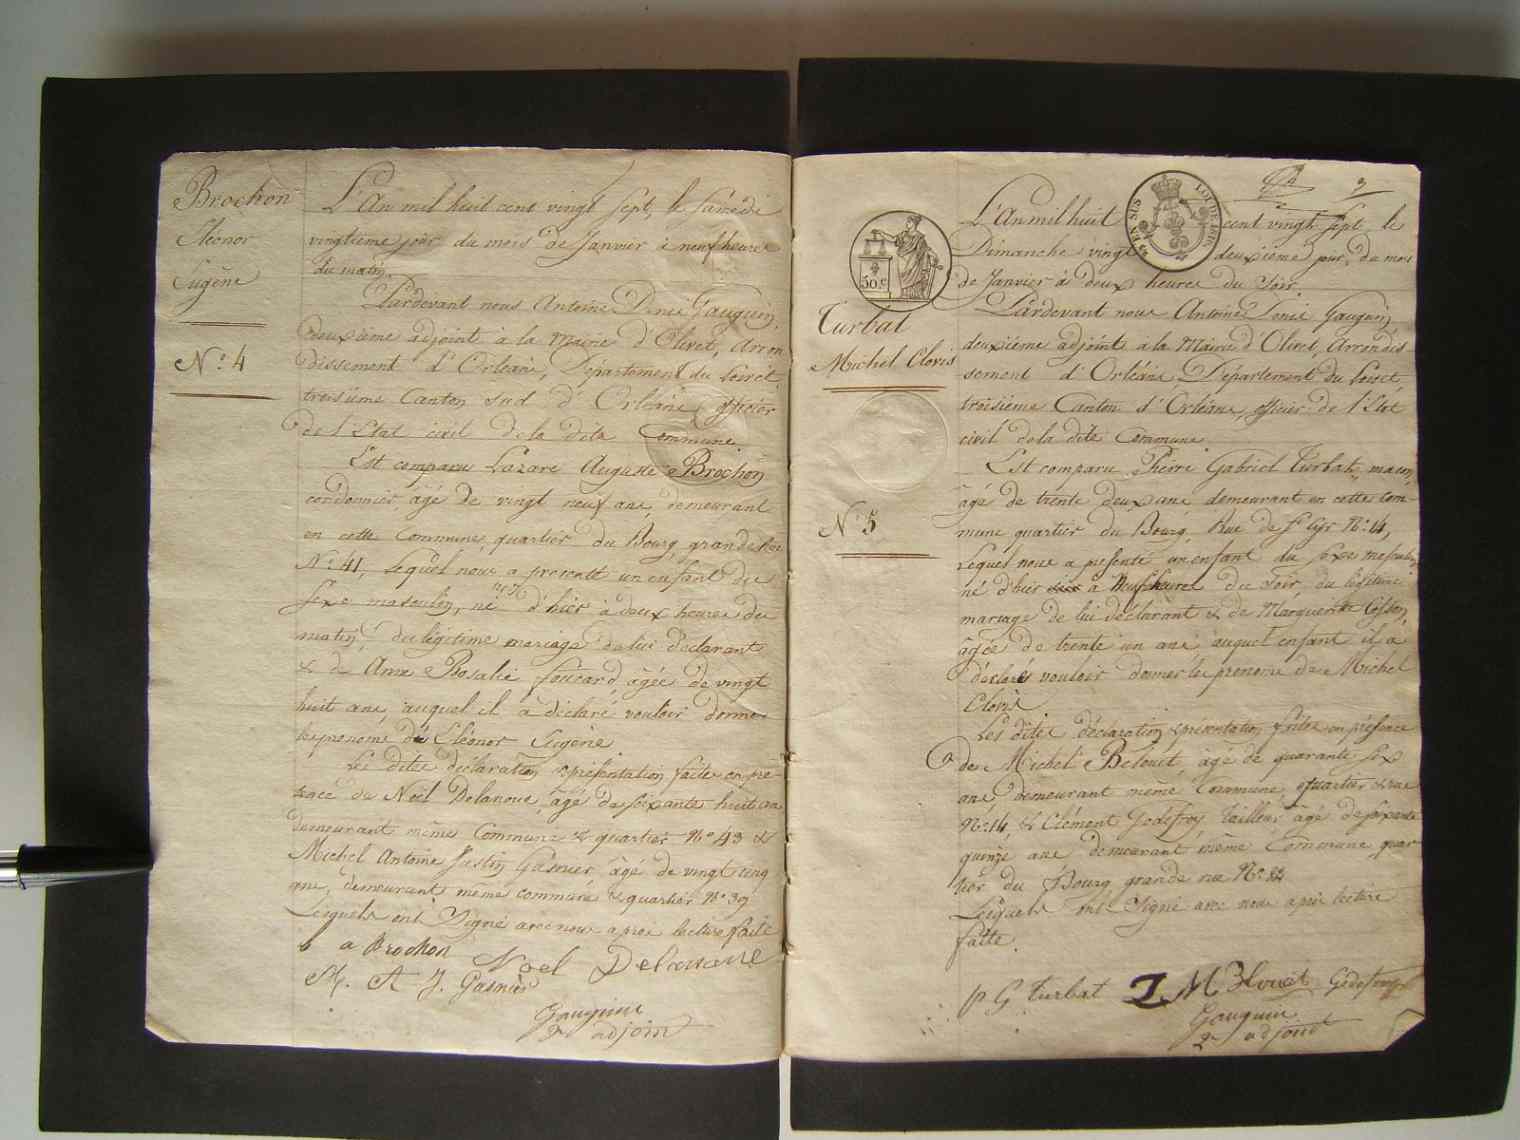 Brochon
Eléonor
Eugène
N.o 4
L'An mil huit cent vingt sept, le Samedi
vingtième jour du mois de Janvier à neuf heures
du matin.
Pardevant nous Antoine Denis Gauguin,
deuxième adjoint à la Mairie d'Olivet, Arron
dissement d'Orléans, Département du Loiret,
troisième Canton sud d'Orléans, officier
de l'Etat civil de la dite Commune
Est comparu Lazare Auguste Brochon
cordonnier, âgé de vingt neuf ans, demeurant
en cette Commune, quartier du Bourg, grande Rue
N.o 41, Lequel nous a présenté un enfant du
sexe masculin, né d'hier à deux heures du
matin, du légitime mariage de lui déclarant
& de Anne Rosalie foucard, âgée de vingt
huit ans, auquel il a déclaré vouloir donner
les prenoms de Eléonor Eugène
Les dites déclaration & présentation faites en pré-
sence de Noël Delanoue, âgé de soixante huit ans
demeurant même Commune & quartier N.o 43 &
Michel Antoine Justin Gasnier, âgé de vingt cinq
ans, demeurant même commune & quartier N.o 39
Lesquels ont Signé avec nous apres lecture faite
a Brochon Noel Delanoue
M. A. J. Gasnier
Gauguin
2e adjoint
3
50 c.
EN SUS
LOI DE 1816
Turbat
Michel Clovis
N.o 5
L'An mil huit cent vingt sept, le
Dimanche vingt deuxième jour, du mois
de Janvier à deux heures du Soir
Pardevant nous Antoine Denis Gauguin
deuxième adjoint a la Mairie d'Olivet, Arrondis
sement d'Orléans Département du Loiret,
troisième Canton d'Orléans, officier de l'Etat
civil de la dite Commune
Est comparu Pierre Gabriel Turbat, maçon,
âgé de trente deux ans demeurant en cette Com-
mune quartier du Bourg, Rue de St Cyr N.o 14,
Lequel nous a présenté un enfant du sexe masculin,
né d'hier à Neuf heures du Soir, du légitime
mariage de lui déclarant & de Marguerite Cosson,
âgée de trente un ans auquel enfant il a
déclaré vouloir donner les prenoms de Michel
Clovis
Les dites déclaration & présentation faites en présence
de Michel Belouet, âgé de quarante six
ans demeurant même Commune, quartier & rue
N.o 14, & Clément Godefroy, tailleur âgé de soixante
quinze ans demeurant même Commune quar
tier du Bourg grande rue N.o
Lesquels ont Signé avec nous après lecture
faite.
p G turbat M Blouet Godefroy
Gauguin
2e adjoint